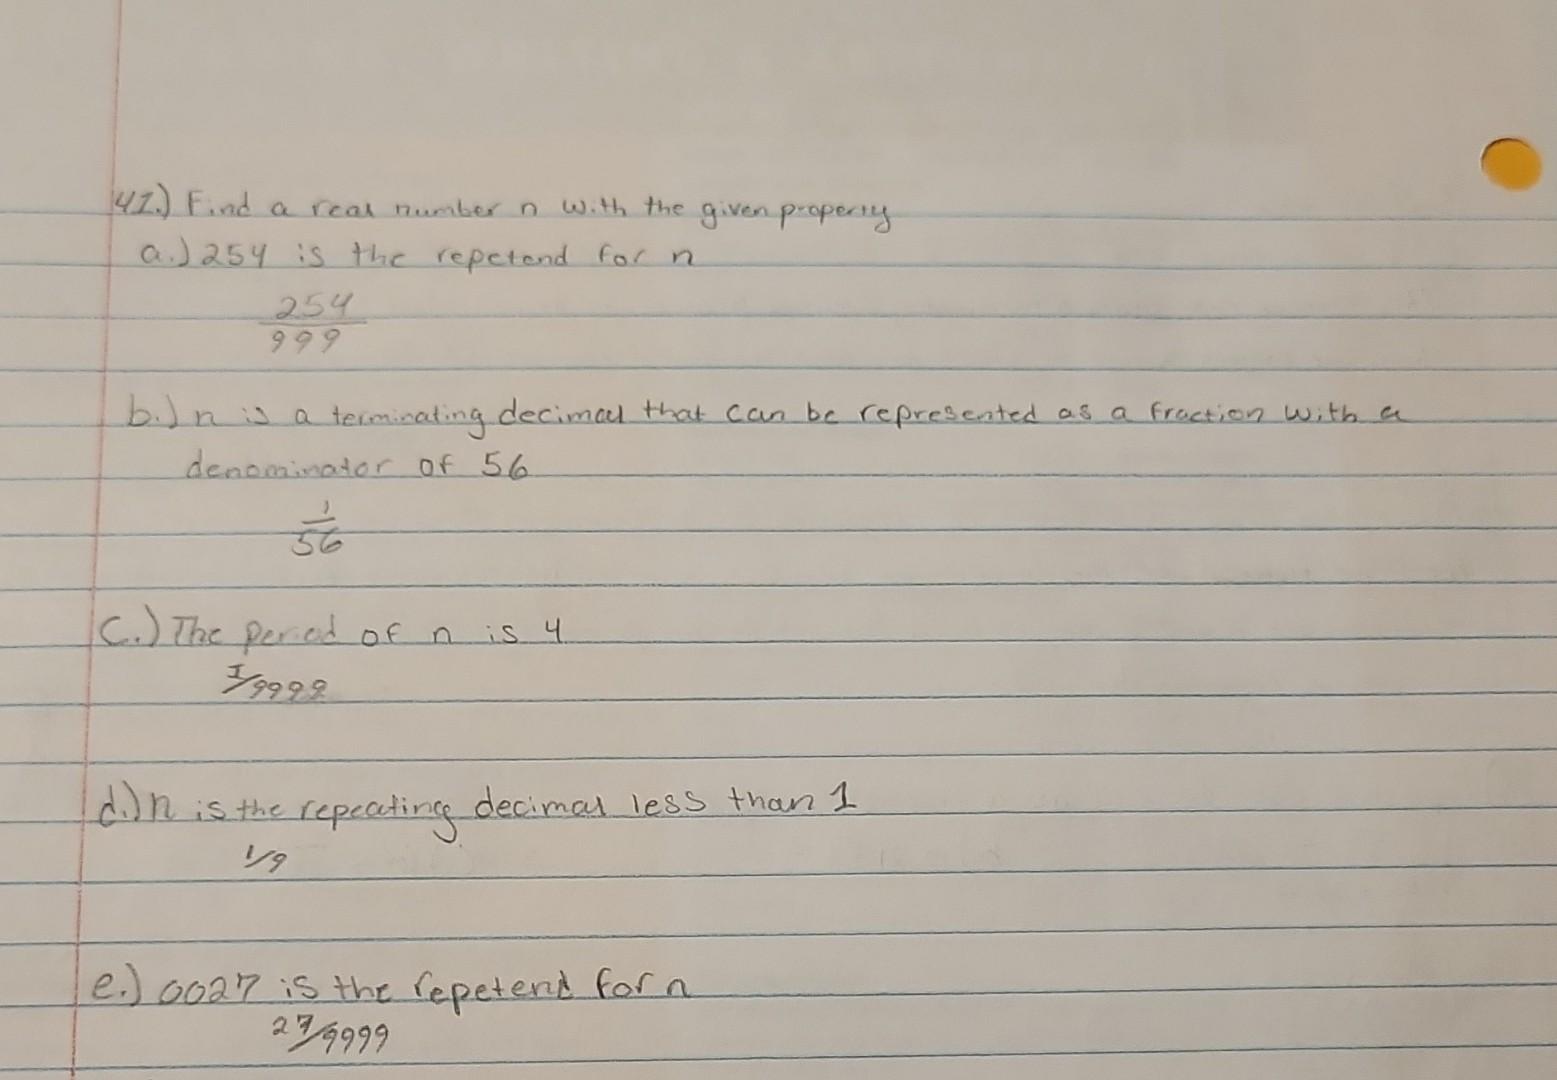 41.) Find a real number n with the given property
a.) 254 is the repetend for n
254
999
b.) n is a terminating decimal that can be represented as a fraction with a
denominator of 56
1
56
C.) The period of n is 4
1/9999
d.) n is the repeating decimal less than 1
1/9
e.) 0027 is the repetend for n
27/9999